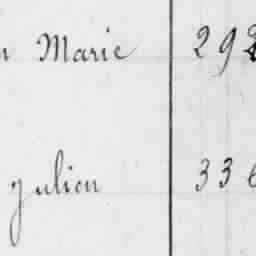 Marie 29
Julien 33